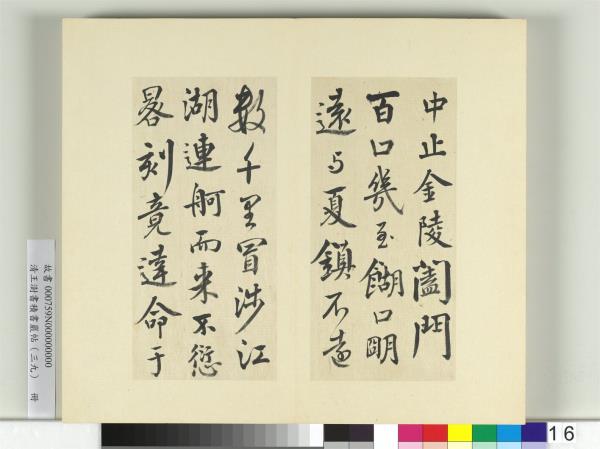 中止金陵闔門
百口幾至餬口明
遠与夏鎮不遠
數千里冒涉江
湖連舸而來不愆
晷刻竟達命于
故書000759N000000000
清王澍書積書巖帖（三九） 冊
16